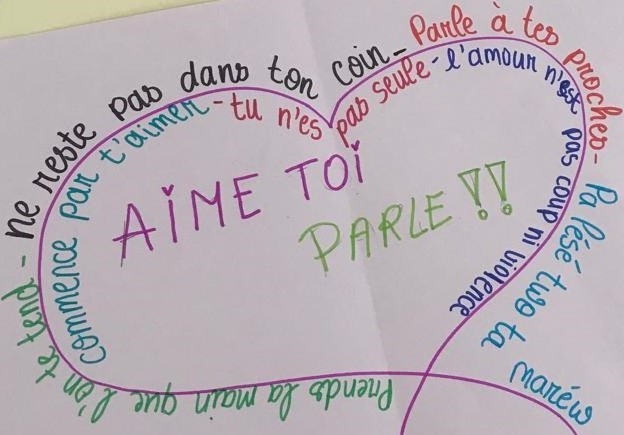 Prends la main que l'on te tend - ne reste pas dans ton coin - Parle à tes proches - Pa lésé two ta maréw
Commence par t'aimer - tu n'es pas seule - l'amour n'est pas coup ni violence
AIME TOI
PARLE !!